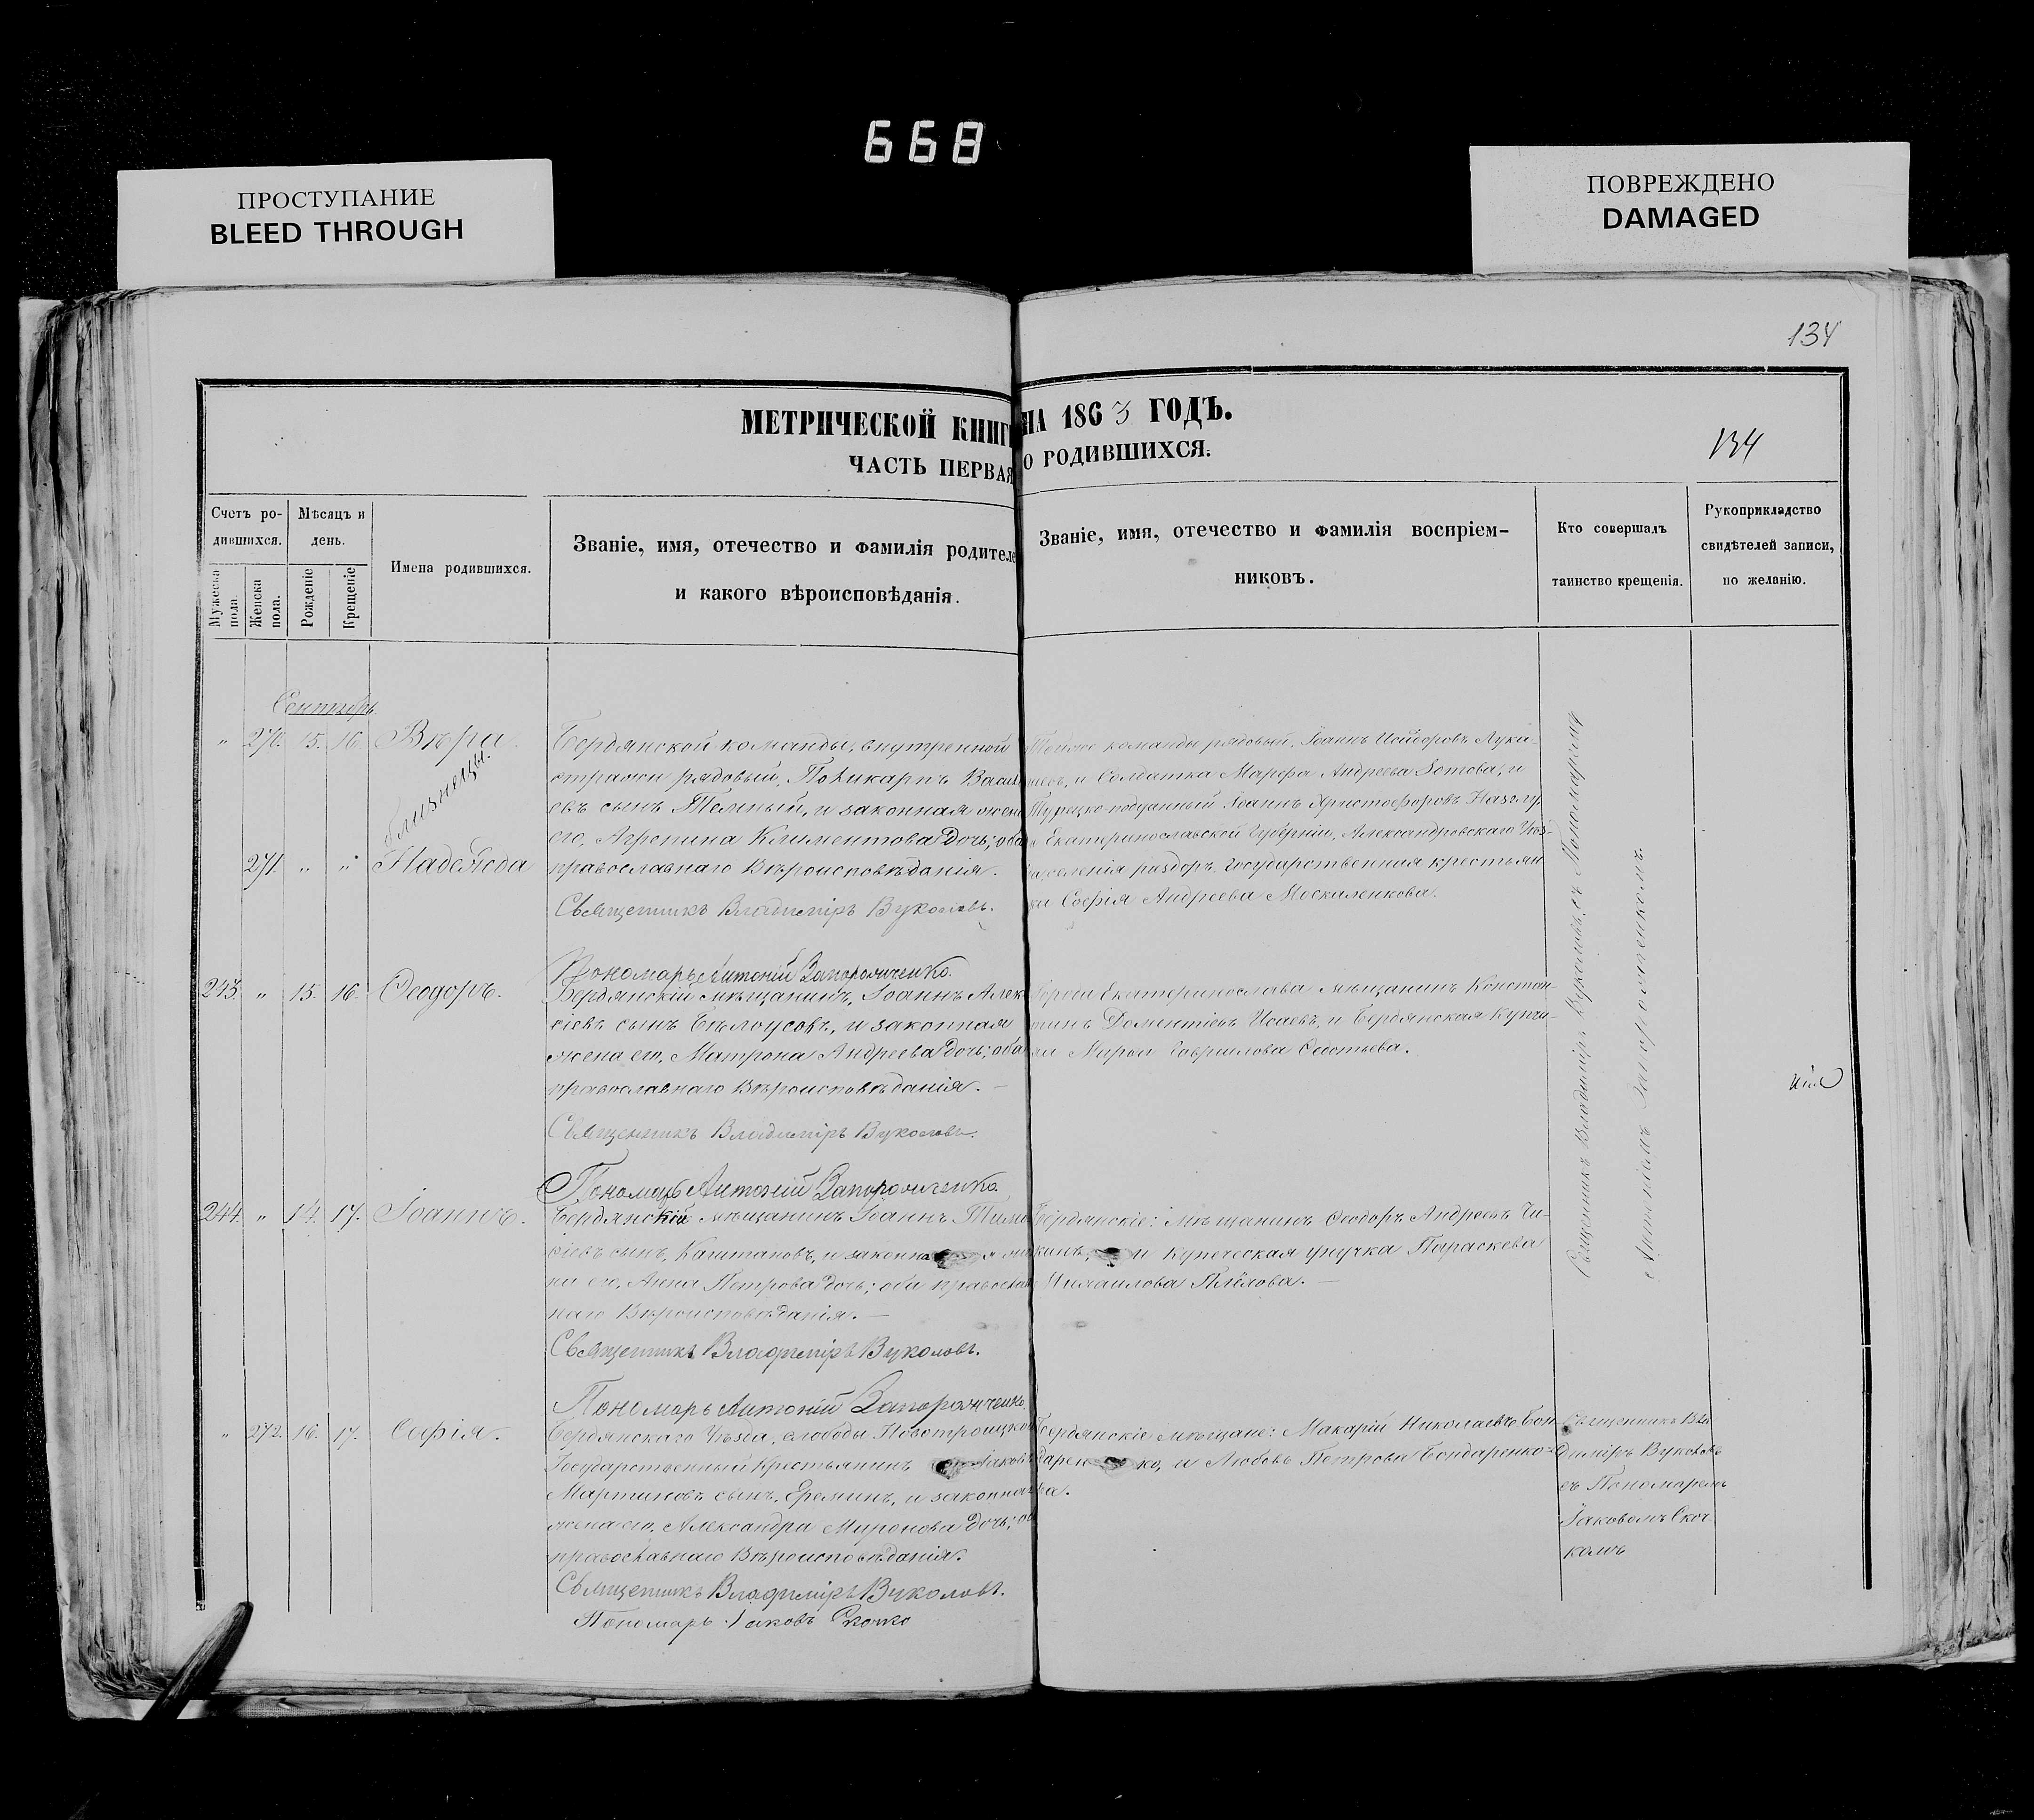 668
ПРОСТУПАНИЕ
BLEED THROUGH
ПОВРЕЖДЕНО
DAMAGED
134
МЕТРИЧЕСКОЙ КНИГ НА 1863 ГОДЪ.
ЧАСТЬ ПЕРВАЯ О РОДИВШИХСЯ.
134
Счетъ ро-
дившихся.
Мужеска пола.
Женска пола.
Мѣсяцъ и
день.
Рожденіе
Крещеніе
Имена родившихся.
Званіе, имя, отечество и фамилія родителе
и какого вѣроисповѣданія.
Званіе, имя, отечество и фамилія воспріем-
никовъ.
Кто совершалъ
таинство крещенія.
Рукоприкладство
свидѣтелей записи,
по желанію.
Сентябрь
" 270. 15. 16. Вѣра.
близнецы.
271. " " Надежда
Бердянской команды, внутренной
стражи рядовый, Поликарпъ Василь
евъ сынъ Темный, и законная жена
его, Агрепина Климентова дочь; оба
православнаго Вѣроисповѣданія.
Священникъ Владиміръ Вуколовъ.
Пономарь Антоній Запорожченко.
Тойже команды рядовый, Іоаннъ Исидоровъ Луки-
и Солдатка Марфа Андреева Зотова, и
Турецко подданный Іоаннъ Христофоровъ
Екатеринославской Губерніи, Александровскаго Уѣз-
селенія раздоръ, государственная крестьян
ка Софія Андреева Москаленкова.
243. " 15. 16. Ѳеодоръ.
Бердянскій мѣщанинъ, Іоаннъ Алек
сіевъ сынъ Бѣлоусовъ, и законная
жена его, Матрона Андреева дочь; оба
православнаго Вѣроисповѣданія.
Священникъ Владиміръ Вуколовъ.
Пономарь Антоній Запорожченко
Города Екатеринослава мѣщанинъ Констан-
тинъ Дементіевъ Исаевъ, и Бердянская Купчи-
ха Гавриилова
244. " 14. 17. Іоаннъ.
Бердянскій мѣщанинъ Іоаннъ Тимо
ѳіевъ сынъ, Каштановъ, и законна я же
на его, Анна Петрова дочь; оба православ
наго Вѣроисповѣданія. —
Священникъ Владиміръ Вуколовъ.
Пономарь Антоній Запорожченко
Бердянскіе: мѣщанинъ Ѳеодоръ Андреевъ Чи-
и купеческая внучка Параскева
Михаилова —
Священникъ Владиміръ Вуколовъ, съ Пономаремъ
Антоніемъ Запорожченкомъ.
" 272. 16. 17. Софія.
Бердянскаго Уѣзда, слободы Новотроицкой
Государственный Крестьянинъ Іаковъ
Мартиновъ сынъ, Ереминъ, и законная
жена его, Александра Миронова дочь; об
православнаго Вѣроисповѣданія.
Священникъ Владиміръ Вуколовъ.
Пономарь Іаковъ Скочко
Бердянскіе мѣщане: Макарій Николаевъ Бон
дарен ко, и Любовь Петрова Бондаренко-
ва.
Священникъ Вла
диміръ Вуколовъ
съ Пономаремъ
Іаковомъ Скоч
комъ